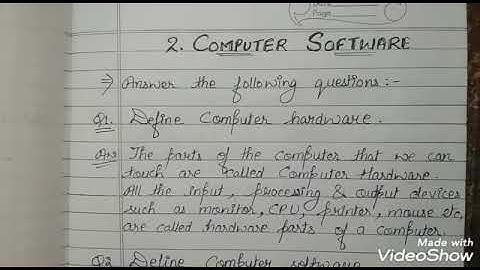 Page
2. COMPUTER SOFTWARE
⇒ Answer the following questions:-
Q1. Define Computer hardware.
Ans The parts of the computer that we can
touch are called Computer Hardware.
All the input, processing & output devices
such as monitor, CPU, printer, mouse etc,
are called hardware parts of a computer.
Q2 Define Computer software
Made with
VideoShow